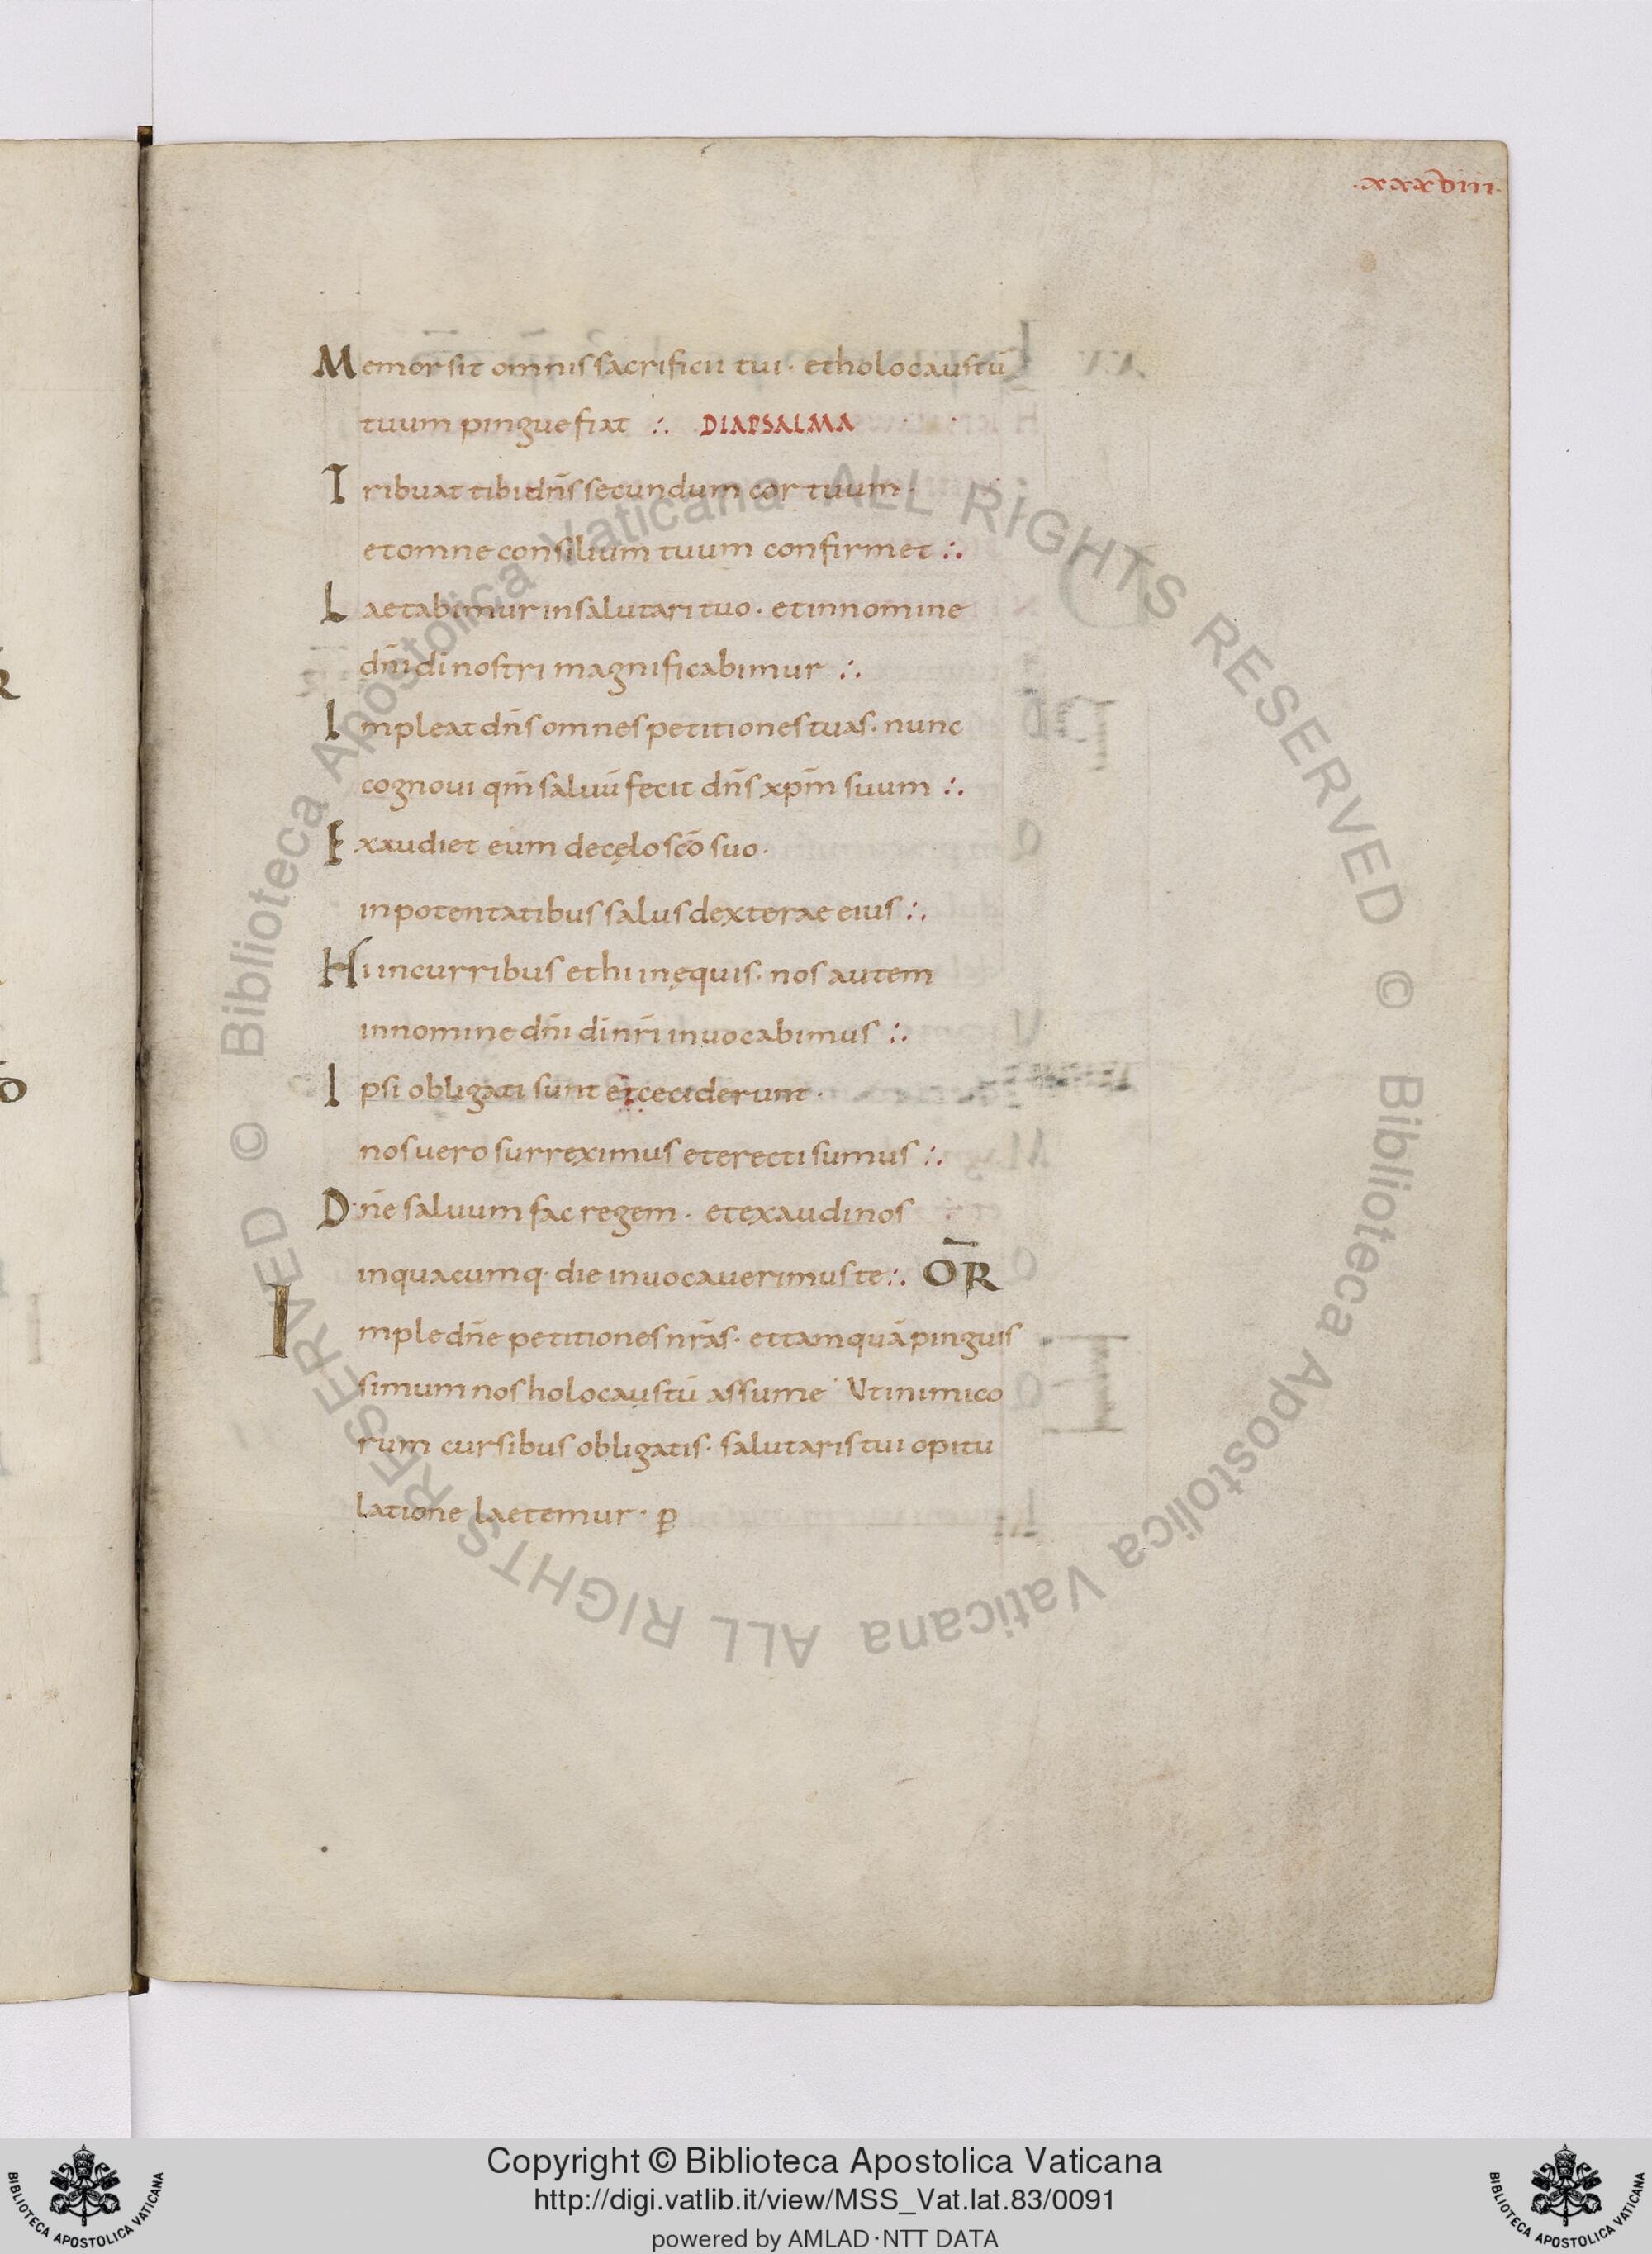 .xxxviii.
Memor sit omnis sacrificii tui· et holocaustū
tuum pingue fiat ∴ DIAPSALMA
Tribuat tibi dn̄s secundum cor tuum·
et omne consilium tuum confirmet ∴
Laetabimur in salutari tuo· et in nomine
dn̄i dī nostri magnificabimur ∴
Impleat dn̄s omnes petitiones tuas· nunc
cognoui qm̄ saluū fecit dn̄s xpm̄ suum ∴
Exaudiet eum de cęlo scō suo·
in potentatibus salus dexterae eius ∴
Hi in curribus et hi in ęquis· nos autem
in nomine dn̄i dī nr̄i inuocabimus ∴
Ipsi obligati sunt et ceciderunt·
nos uero surreximus et erecti sumus ∴
Dn̄e saluum fac regem· et exaudi nos
in quacumq· die inuocauerimus te ∴ OR̄
Imple dn̄e petitiones nr̄as· et tamquā pinguis
simum nos holocaustū assume· Ut inimico
rum cursibus obligatis· salutaris tui opitu
latione laetemur· p̄
© Biblioteca Apostolica Vaticana ALL RIGHTS RESERVED © Biblioteca Apostolica Vaticana ALL RIGHTS RESERVED
Copyright © Biblioteca Apostolica Vaticana
http://digi.vatlib.it/view/MSS_Vat.lat.83/0091
powered by AMLAD·NTT DATA
BIBLIOTECA APOSTOLICA VATICANA
BIBLIOTECA APOSTOLICA VATICANA